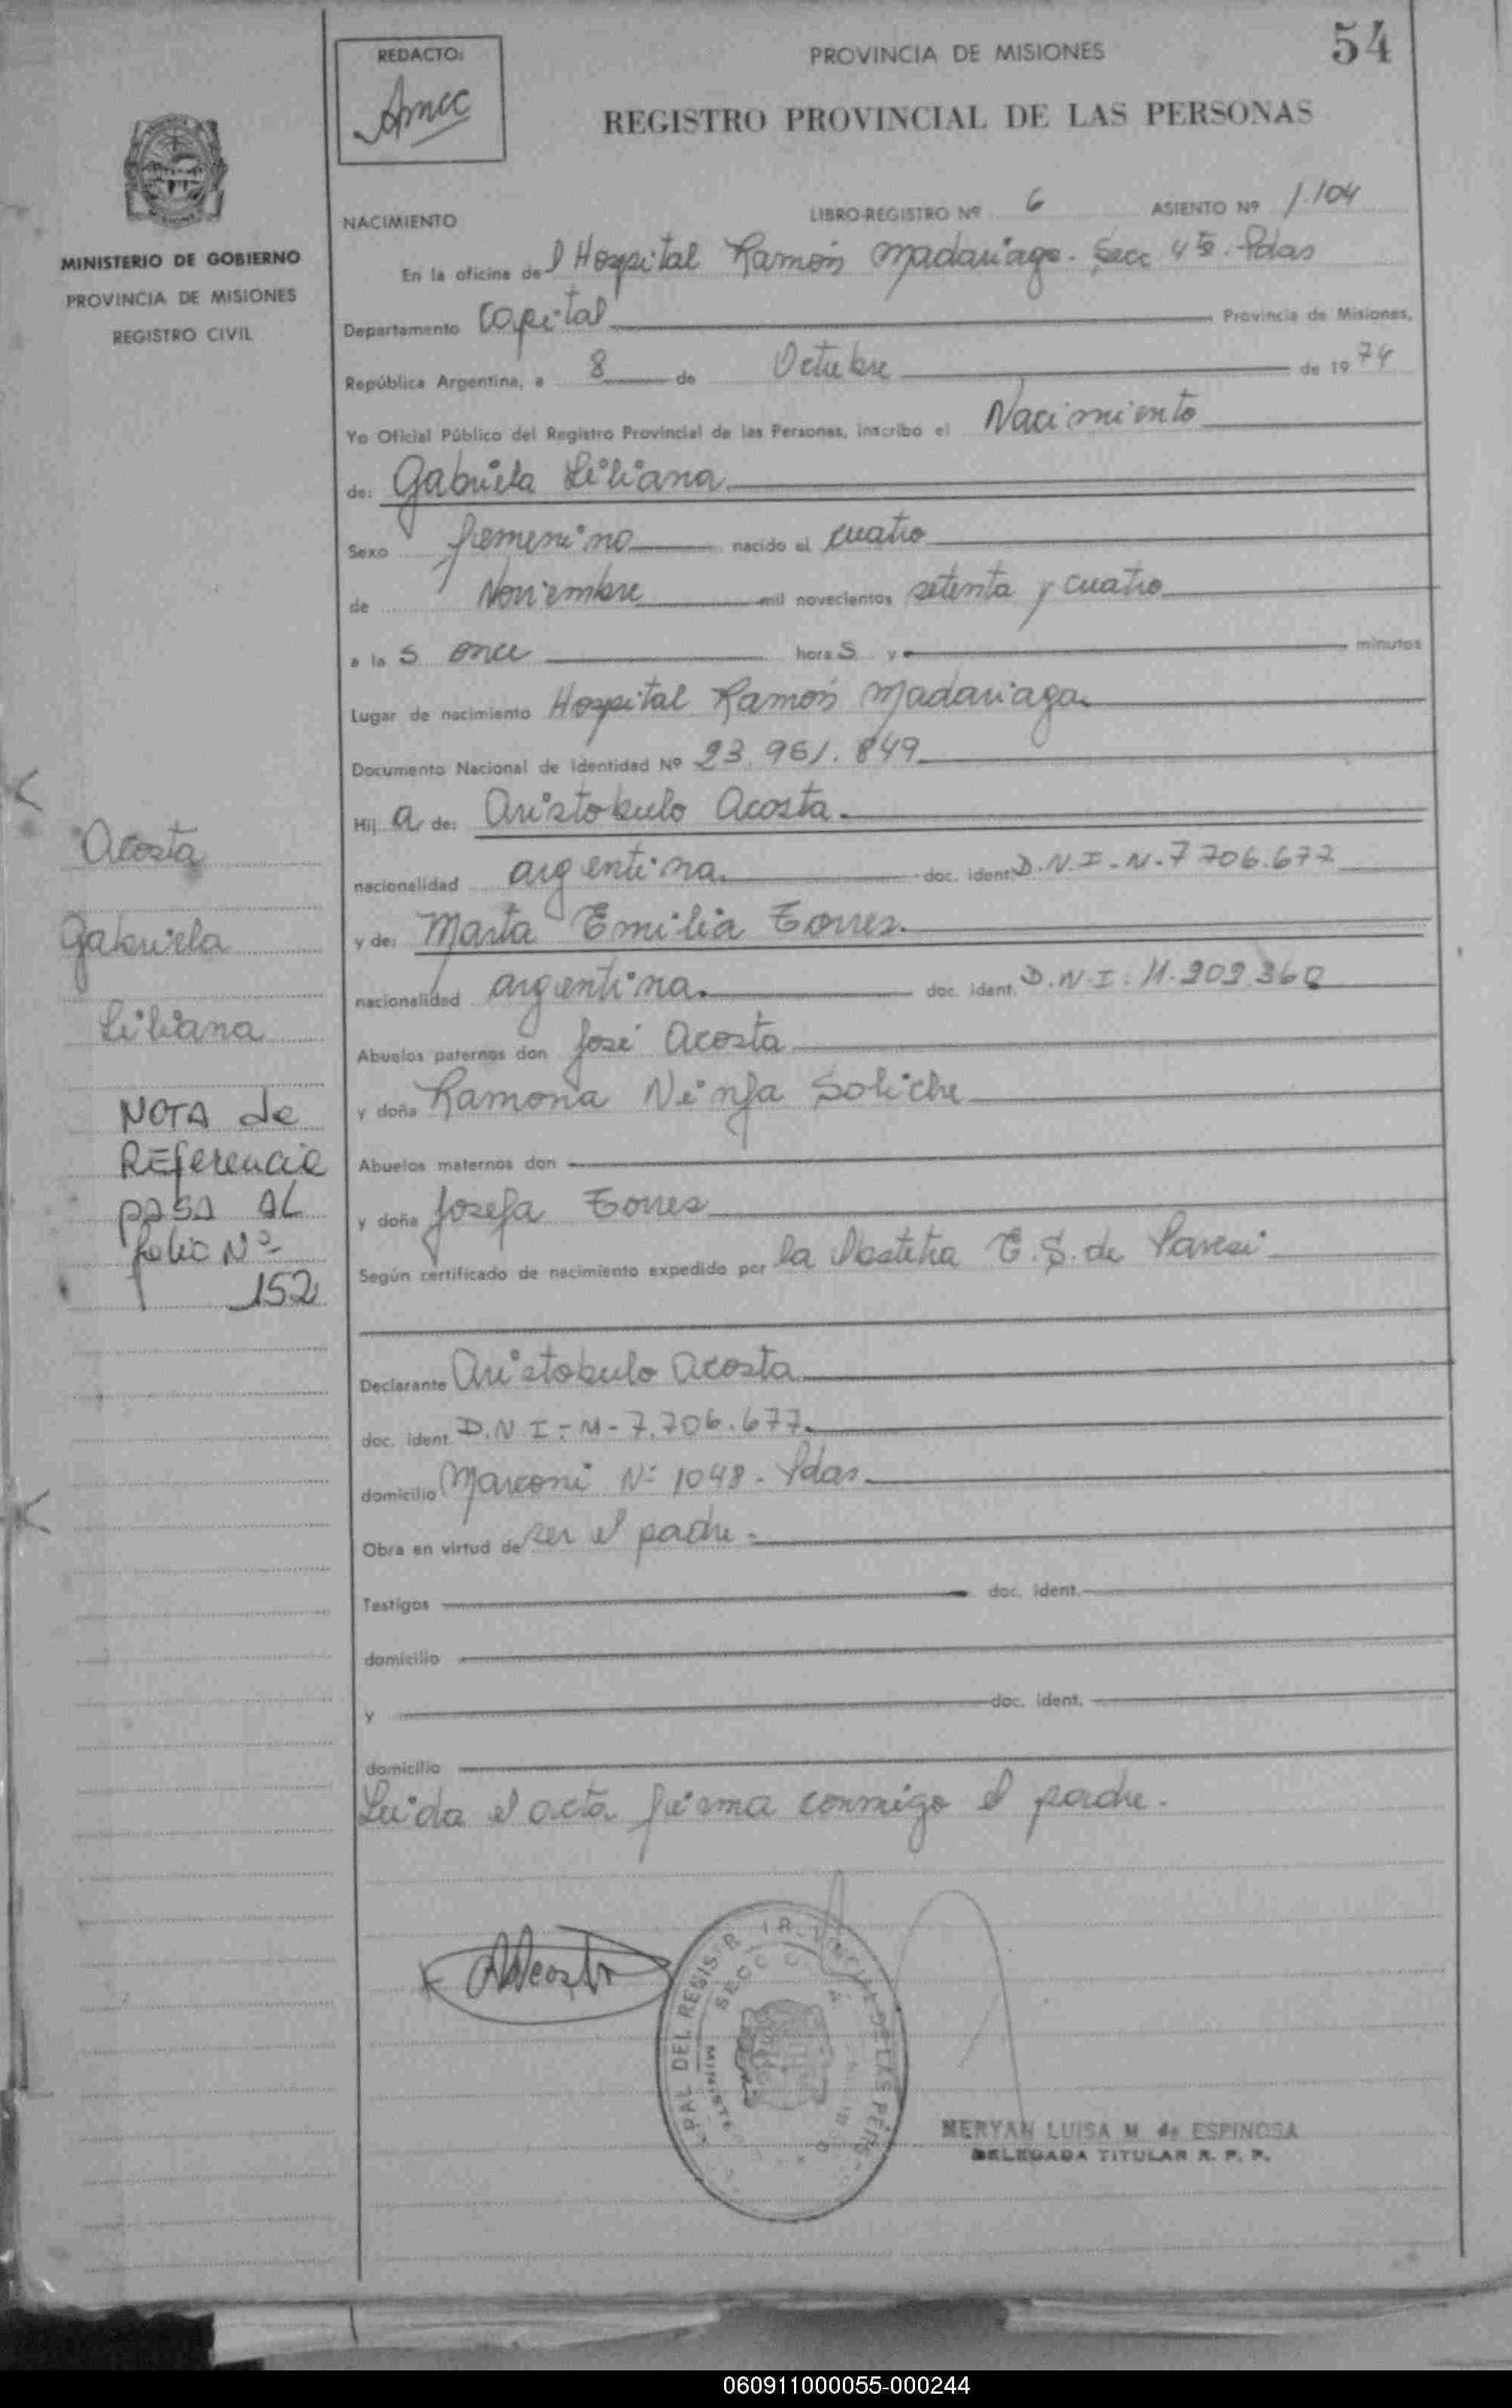 54
REDACTO:
PROVINCIA DE MISIONES
REGISTRO PROVINCIAL DE LAS PERSONAS
MINISTERIO DE GOBIERNO
PROVINCIA DE MISIONES
REGISTRO CIVIL
NACIMIENTO LIBRO-REGISTRO Nº 6 ASIENTO Nº 1.104
En la oficina del Hospital Ramón Madariaga - Secc 4ta. Pdas
Departamento Capital Provincia de Misiones,
República Argentina, a 8 de Octubre de 1974
Yo Oficial Público del Registro Provincial de las Personas, inscribo el Nacimiento
de: Gabriela Liliana
Sexo femenino nacido el cuatro
de Noviembre mil novecientos setenta y cuatro
a las once horas y minutos
Lugar de nacimiento Hospital Ramón Madariaga
Documento Nacional de Identidad Nº 23.961.849
Hija de: Aristobulo Acosta
nacionalidad argentina doc. ident. D.N.I-M-7.706.677
y de: Marta Emilia Torres
nacionalidad argentina doc. ident. D.N.I. 11.202.360
Abuelos paternos don José Acosta
y doña Ramona Ninfa Soliche
Abuelos maternos don
y doña Josefa Torres
Según certificado de nacimiento expedido por la Obstetra C.S. de
Declarante Aristobulo Acosta
doc. ident. D.N.I-M-7.706.677
domicilio Marconi Nº 1048. Pdas.
Obra en virtud de ser el padre
Testigos doc. ident.
domicilio
y doc. ident.
domicilio
Leida el acta firma conmigo el padre.
Acosta
Gabriela
Liliana
NOTA de
REFerencia
PASA AL
folio Nº
152
AAcosta
NERYAN LUISA M. de ESPINOSA
DELEGADA TITULAR R. P. P.
060911000055-000244